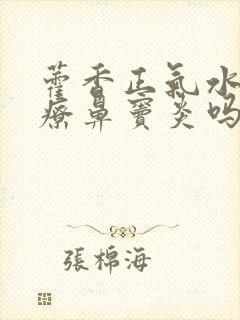 藿香正氣水
療鼻竇炎吗
張棉海